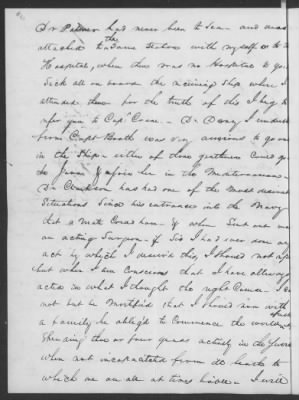 Dr Palmer had never been to Sea - and was
attached to the same Station with myself or to a
Hospital, when there was no Hospital to go.
Sick all on board the receiving ship when I
attended them for the truth of this I beg to
refer you to Capt - Dr I
from Capt Booth was very anxious to go out
in the Ship - either of those gentlemen could go
to join her in the Mediterranean -
Dr has had one of the most
Situations Since his entrance into the Navy
that a man Could have - & when Sent one was
an acting Surgeon - if Sir I had ever done an
act by which I merited this, I should not
but when I am Conscious that I have always
acted in what I thought the right Cause - I
not but be Mortified that I should now with
a family be oblig'd to Commence the world
Spending two or four years actively in the Service
when not incapacitated from it leads to
which we are all at times liable - I will